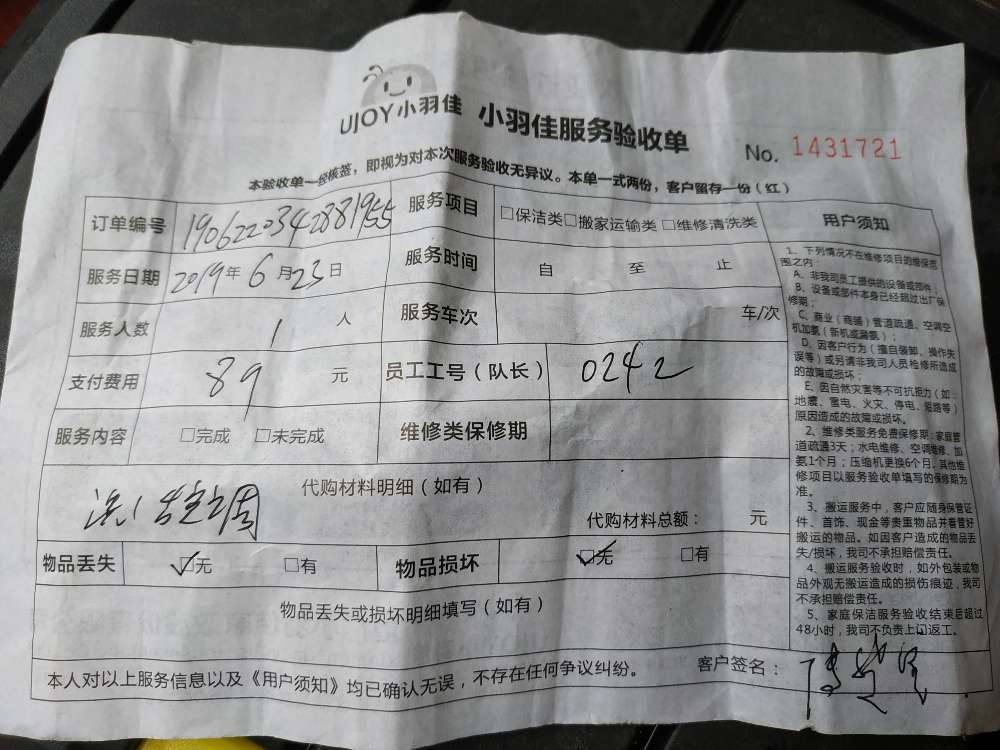 UJOY小羽佳 小羽佳服务验收单
No. 1431721
本验收单一经核签，即视为对本次服务验收无异议。本单一式两份，客户留存一份（红）
订单编号 1906220342881955 服务项目 □保洁类□搬家运输类 □维修清洗类
服务日期 2019年6月23日 服务时间 自 至 止
服务人数 1 人 服务车次 车/次
支付费用 89 元 员工工号（队长） 0242
服务内容 □完成 □未完成 维修类保修期
代购材料明细（如有）
洗1台空调
代购材料总额： 元
物品丢失 ☑无 □有 物品损坏 ☑无 □有
物品丢失或损坏明细填写（如有）
本人对以上服务信息以及《用户须知》均已确认无误，不存在任何争议纠纷。 客户签名：
用户须知
1、下列情况不在维修项目的维保范
围之内：
A、非我司员工提供的设备或部件；
B、设备或部件本身已经超过出厂保
修期；
C、商业（商铺）管道疏通、空调空
机加氨（新机或漏氨）；
D、因客户行为（擅自装卸、操作失
误等）或另请非我司人员检修所造成
的故障或损坏；
E、因自然灾害等不可抗拒力（如：
地震、雷电、火灾、停电、短路等）
原因造成的故障或损坏。
2、维修类服务免费保修期：家庭管
道疏通3天；水电维修、空调维修、加
氨1个月；压缩机更换6个月，其他维
修项目以服务验收单填写的保修期为
准。
3、搬运服务中，客户应随身保管证
件、首饰、现金等贵重物品并看管好
搬运的物品。如因客户造成的物品丢
失/损坏，我司不承担赔偿责任。
4、搬运服务验收时，如外包装或物
品外观无搬运造成的损伤痕迹，我司
不承担赔偿责任。
5、家庭保洁服务验收结束后超过
48小时，我司不负责上门返工。